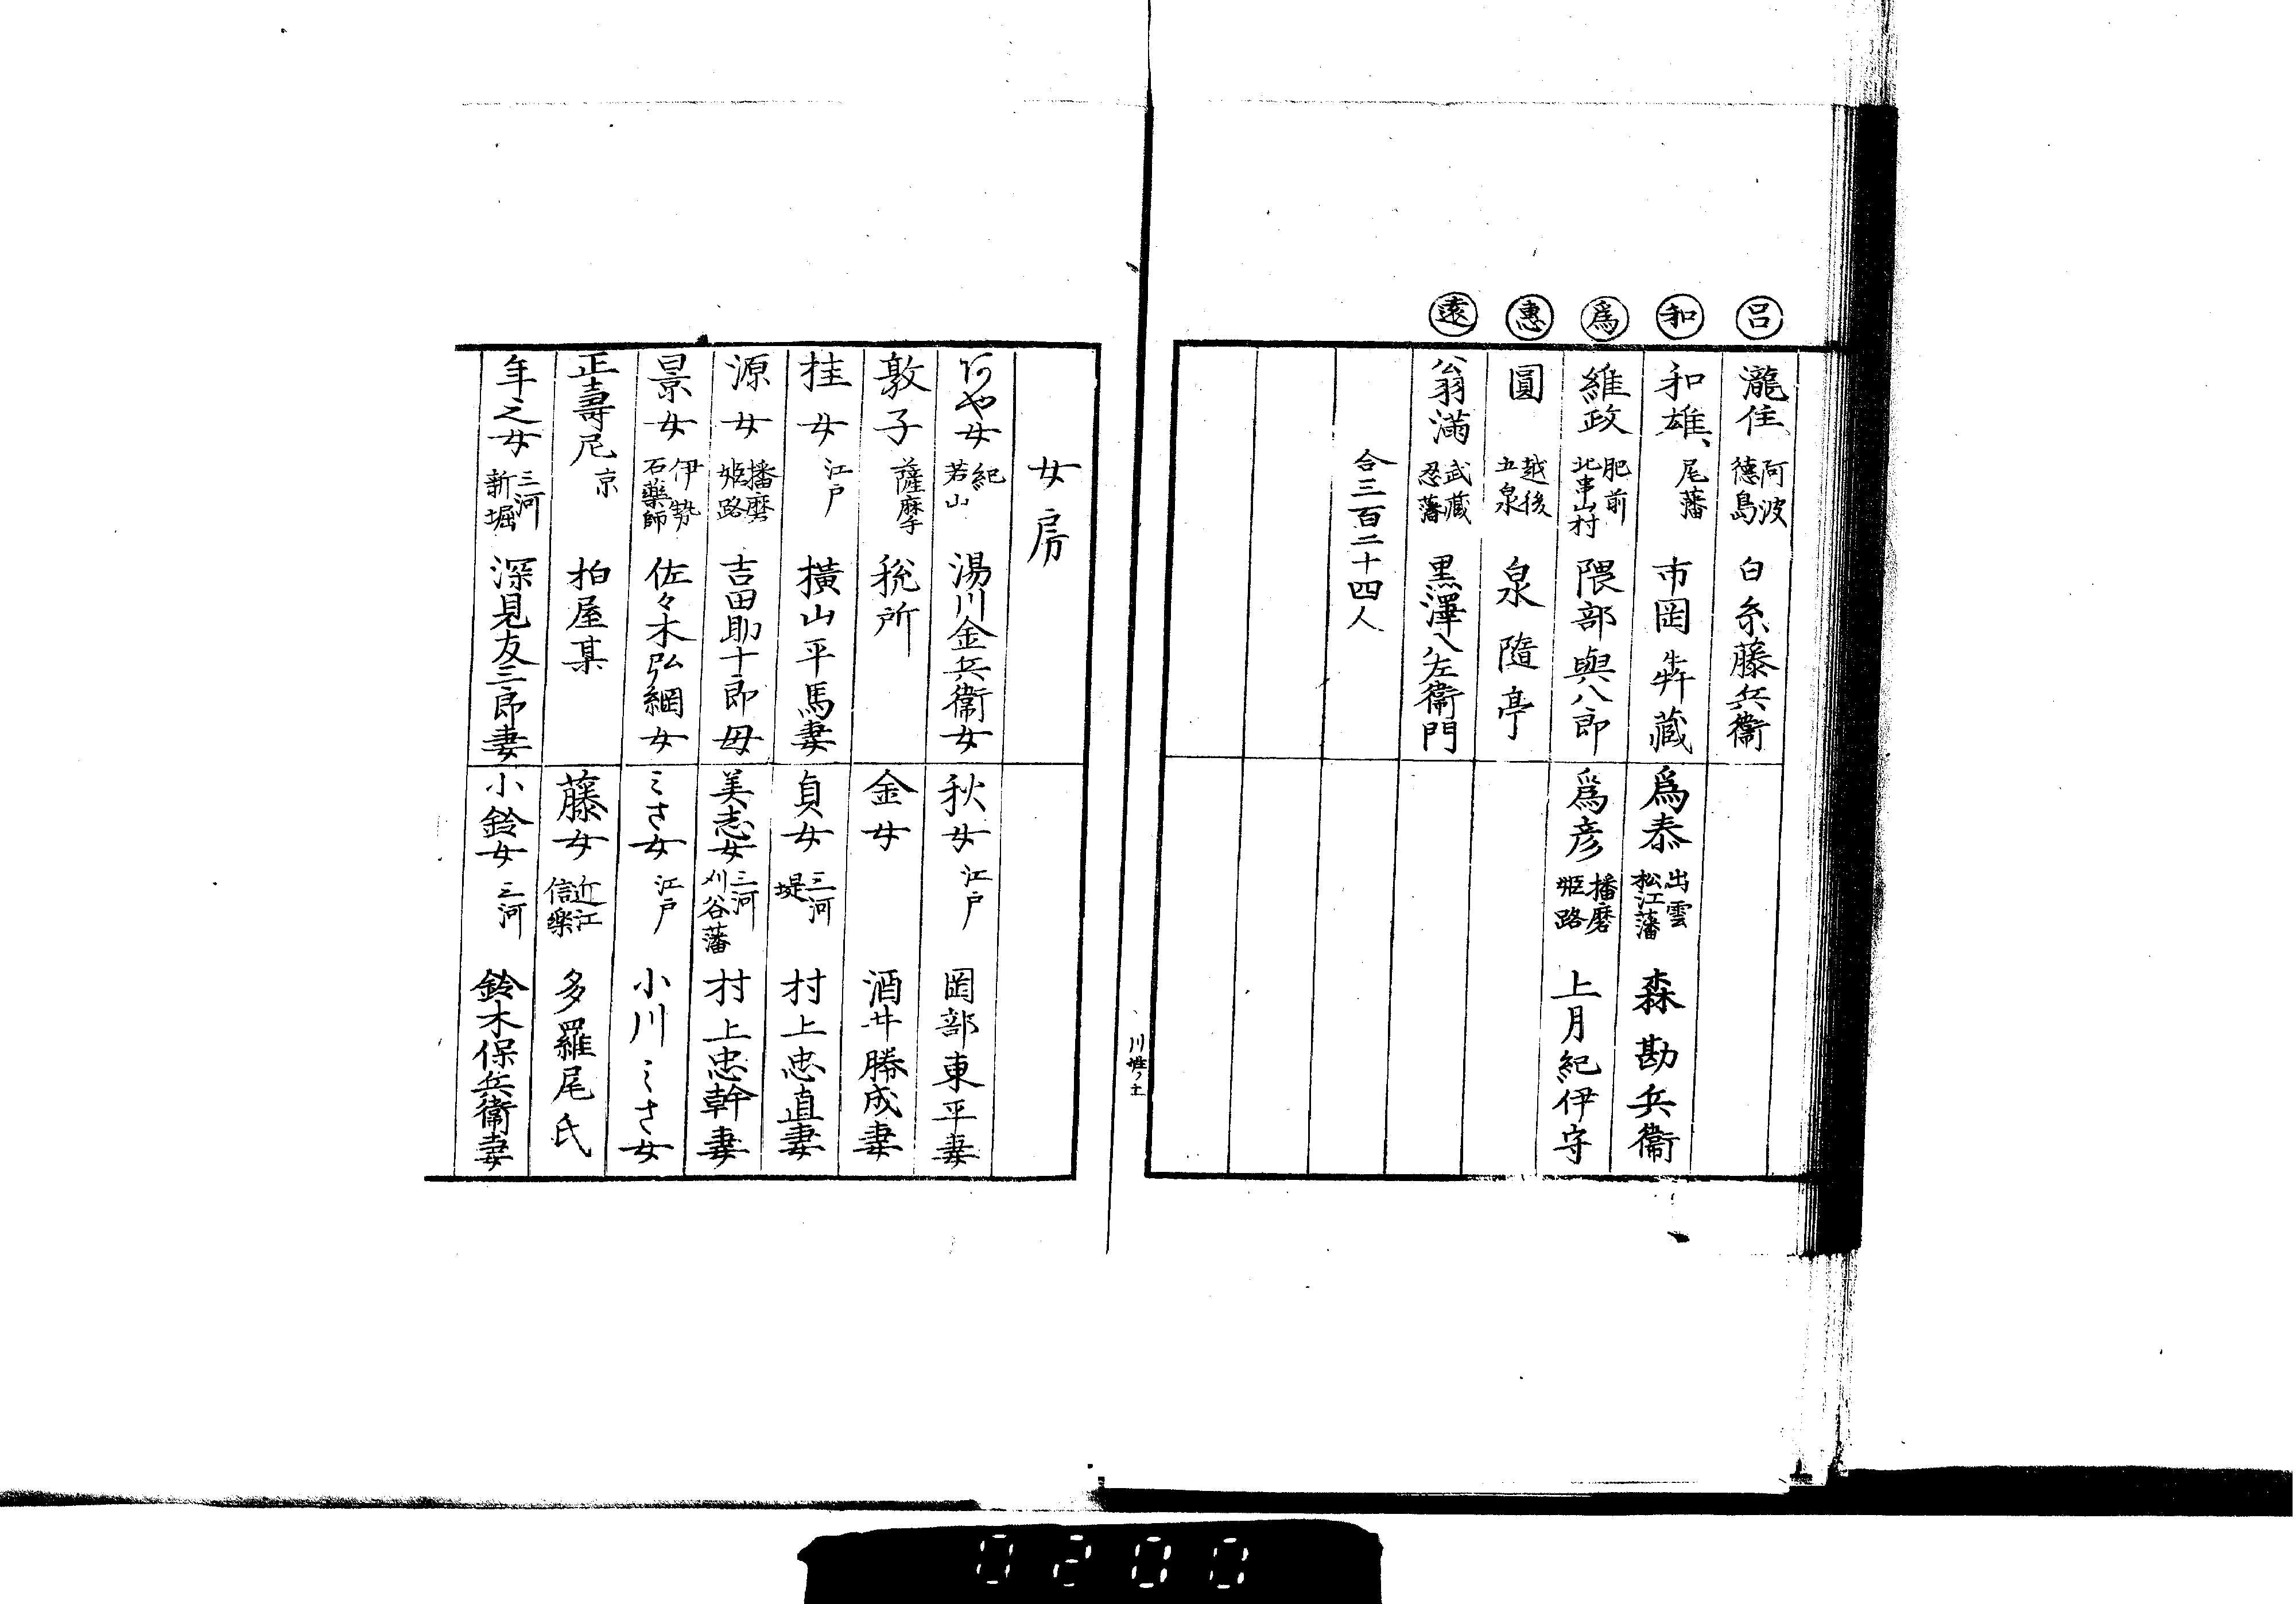 呂
瀧住 阿波徳島 白糸藤兵衞
和
和雄 尾藩 市岡犇藏
爲泰 出雲松江藩 森勘兵衞
爲
維政 肥前北串山村 隈部與八郎
爲彦 播磨姫路 上月紀伊守
惠
圓 越後五泉 泉隨亭
遠
翁滿 武藏忍藩 黒澤八左衞門
合三百二十四人
女房
阿や女 紀若山 湯川金兵衞女
秋女 江戸 岡部東平妻
敦子 薩摩 税所
金女 酒井勝成妻
桂女 江戸 横山平馬妻
貞女 三河堤 村上忠直妻
源女 播磨姫路 吉田助十郎母
美志女 三河刈谷藩 村上忠幹妻
景女 伊勢石藥師 佐々木弘綱女
ミさ女 江戸 小川ミさ女
正壽尼 京 柏屋某
藤女 近江信樂 多羅尾氏
年之女 三河新堀 深見友三郎妻
小鈴女 三河 鈴木保兵衞妻
0200